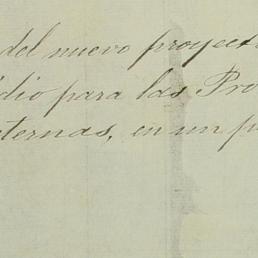 del nuevo proyect
dio para las Pro
ternas, en un p